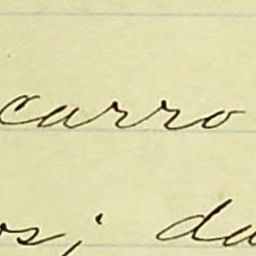 carro
os; da